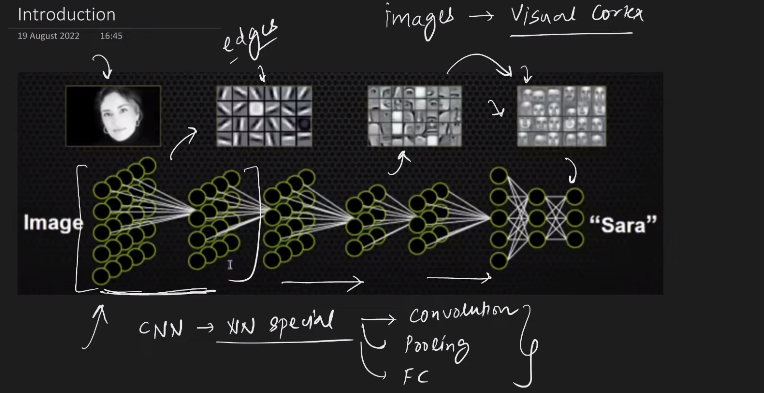 Introduction
19 August 2022 16:45
images → Visual Cortex
edges
Image
"Sara"
CNN → NN special → Convolution
Pooling
FC